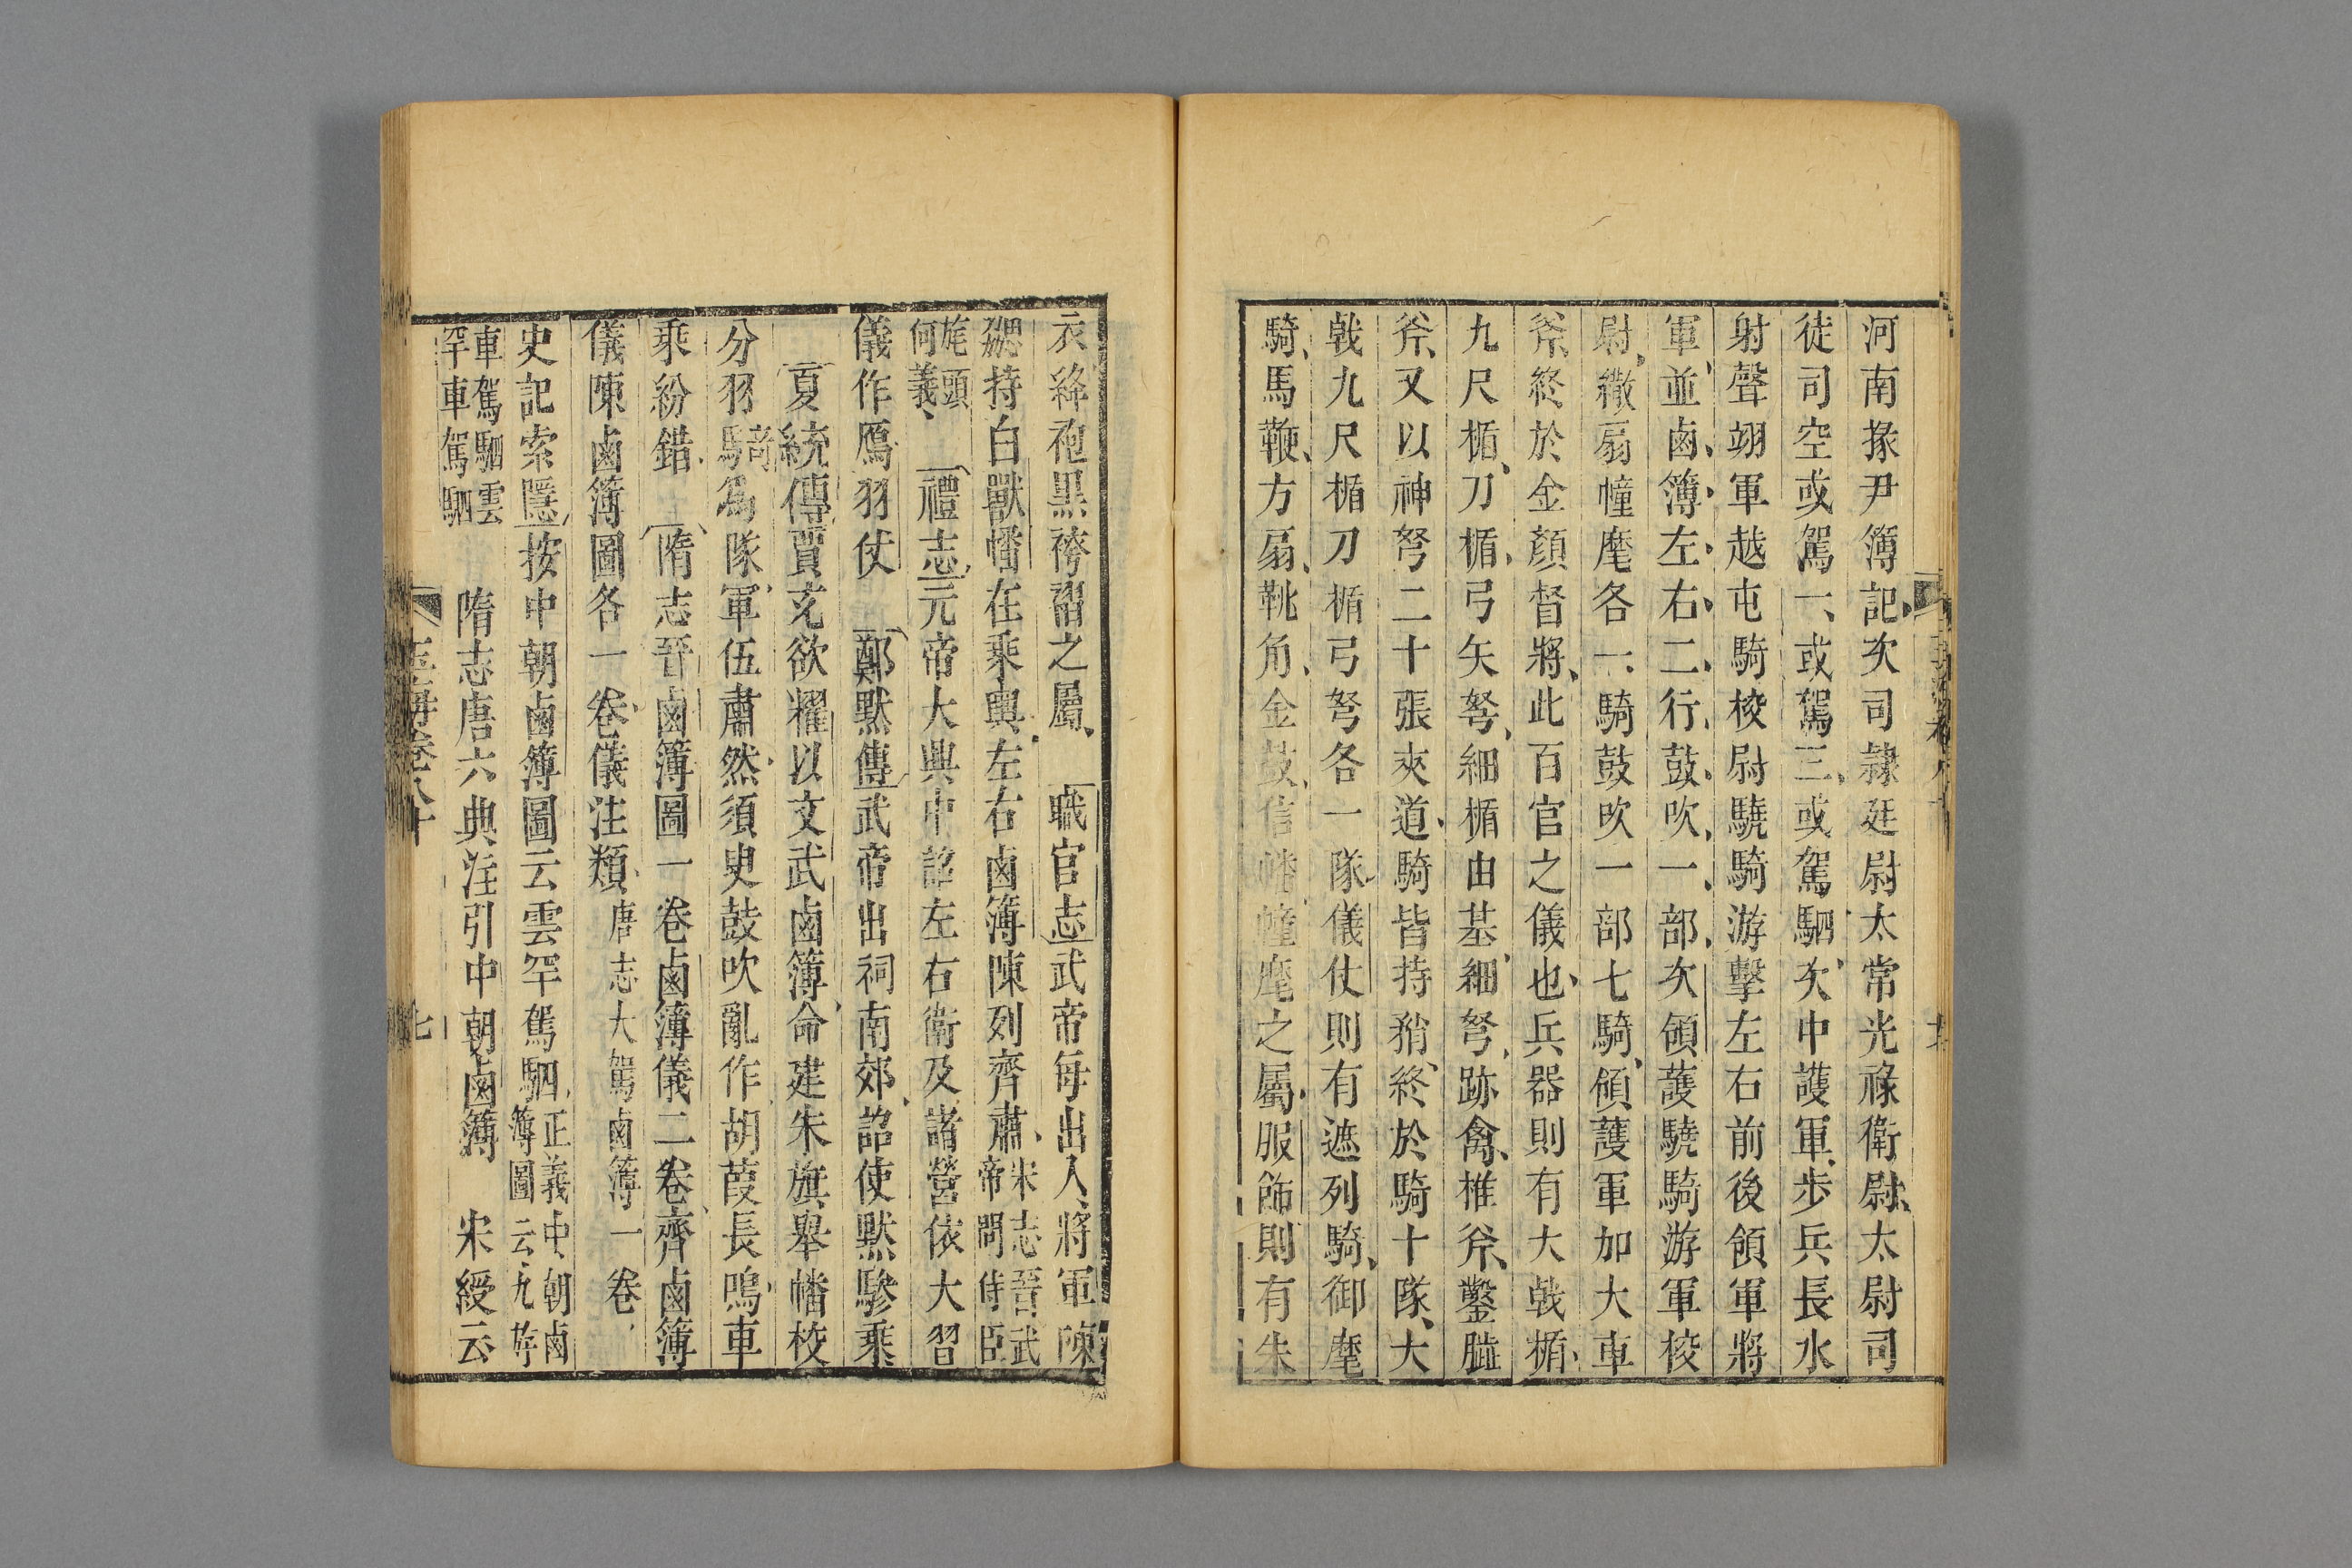 河南掾尹簿記次司隷廷尉太常光祿衛尉太尉司
徒司空或駕一或駕三或駕駟次中護軍步兵長水
射聲翊軍越屯騎校尉驍騎游擊左右前後領軍將
軍並鹵簿左右二行鼓吹一部次領護驍騎游軍校
尉繖扇幢麾各一騎鼓吹一部七騎領護軍加大車
斧終於金顏督將此百官之儀也兵器則有大戟楯
九尺楯刀楯弓矢弩細楯由基細弩跡禽椎斧鑿
斧又以神弩二十張夾道騎皆持矟終於騎十隊大
戟九尺楯刀楯弓弩各一隊儀仗則有遮列騎御麾
騎馬鞭方扇靴角金鼓信幡幢麾之屬服飾則有朱
衣絳袍黒袴褶之屬 職官志武帝每出入將軍陳
勰持白獸幡在乘輿左右鹵簿陳列齊肅宋志晉武帝問侍臣
旄頭何義 禮志元帝大興中詔左右衛及諸營依大習
儀作鴈羽仗 鄭默傳武帝出祠南郊詔使默驂乘
夏統傳賈充欲耀以文武鹵簿命建朱旗舉幡校
分羽騎爲隊軍伍肅然須臾鼓吹亂作胡葭長鳴車
乘紛錯 隋志晉鹵簿圖一卷鹵簿儀二卷齊鹵簿
儀陳鹵簿圖各一卷儀注類唐志大駕鹵簿一卷
史記索隱按中朝鹵簿圖云雲罕駕駟正義中朝鹵簿圖云九斿
車駕駟雲罕車駕駟 隋志唐六典注引中朝鹵簿 宋綬云
玉海卷八十 七